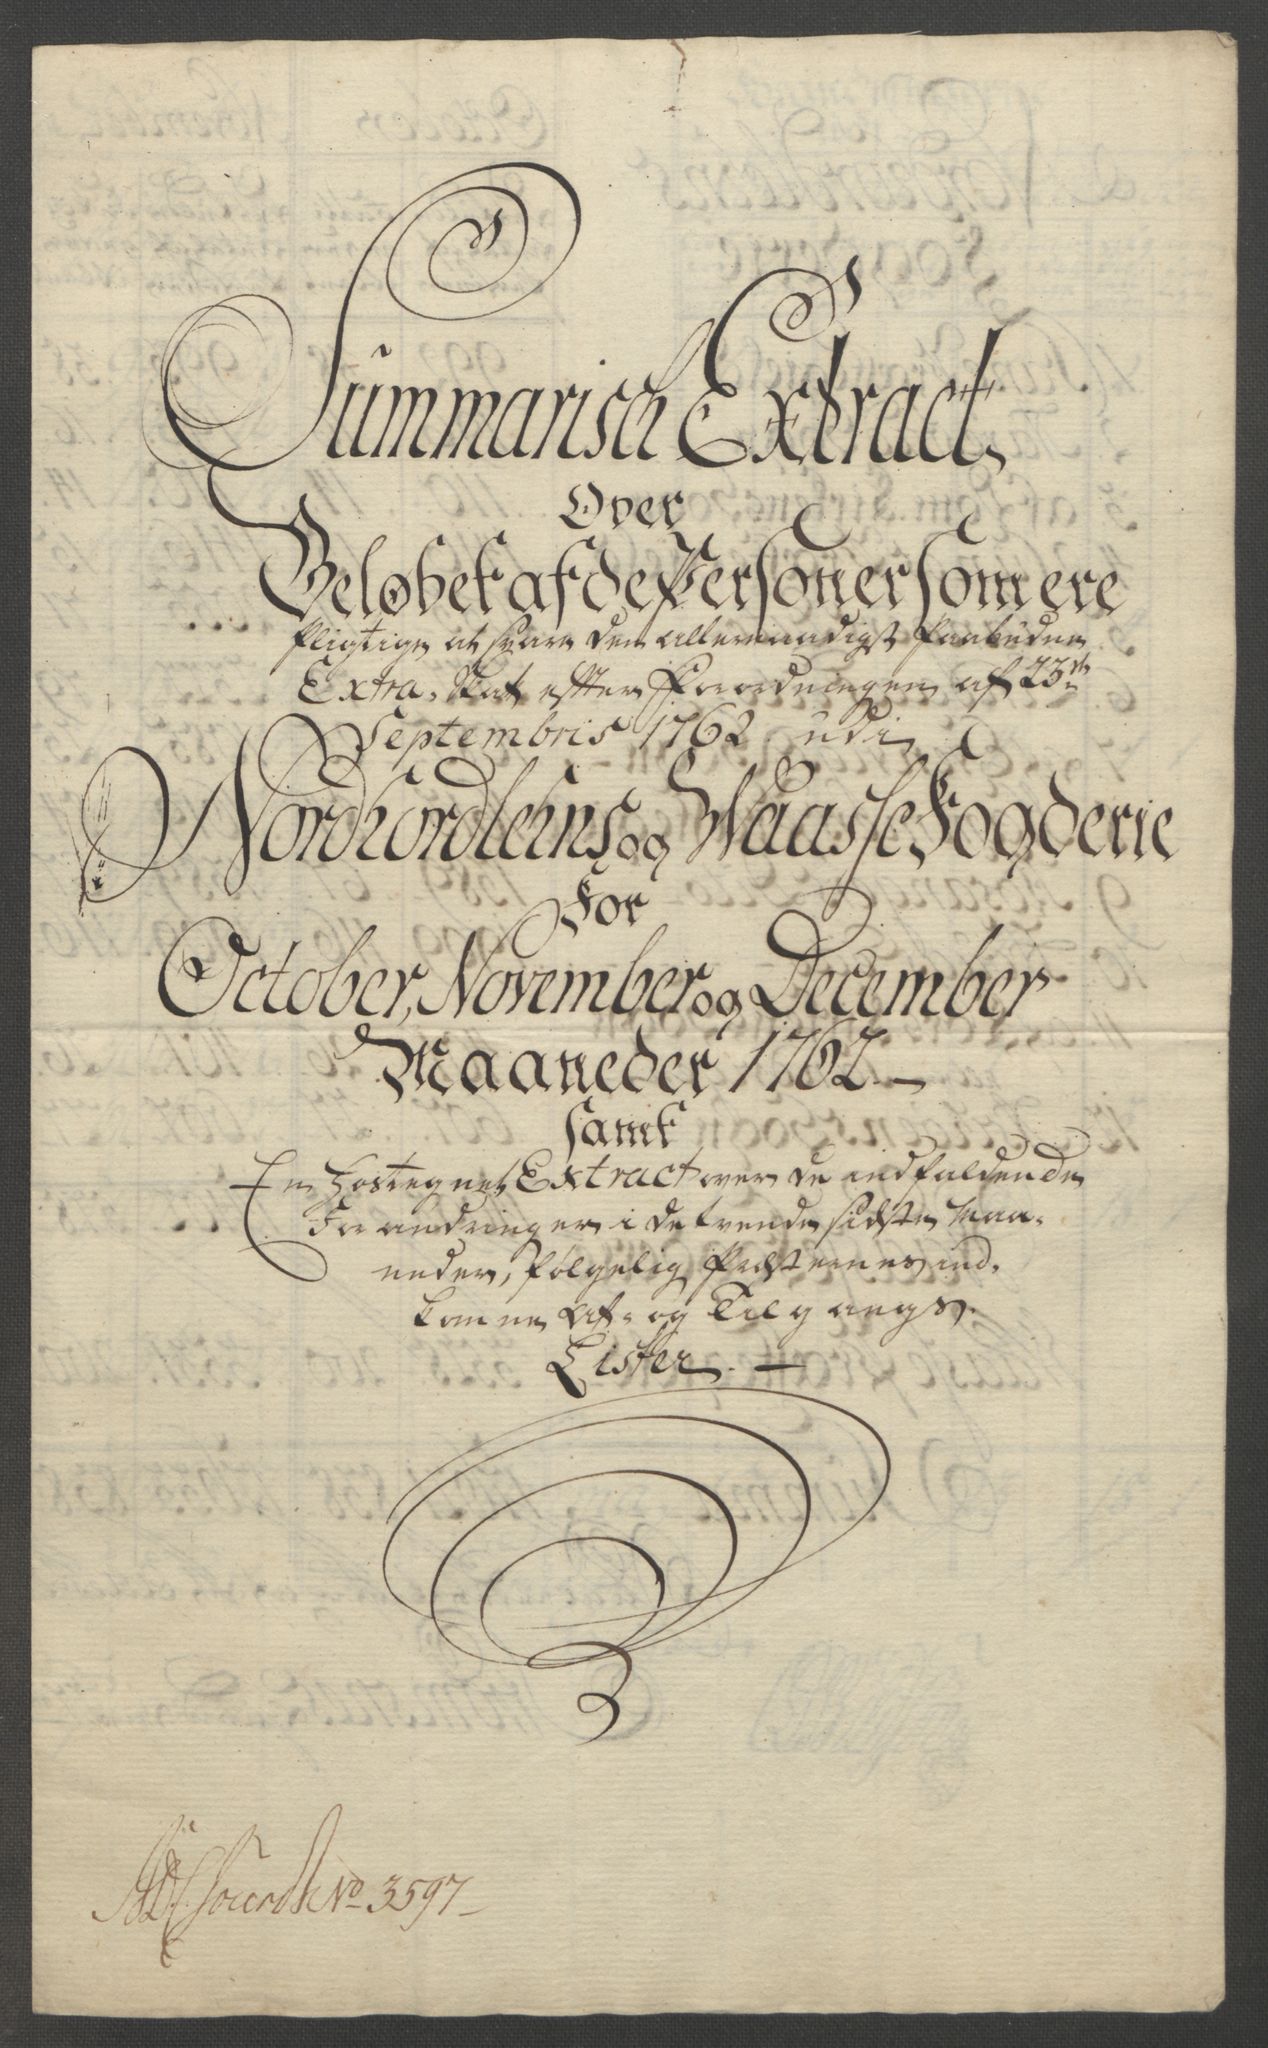 Summarisch Extract
Over
Beløbet af de Personer som ere
Pligtige at svare den allernaadigst paabudne
Extra Skat efter Forordningen af 23de
Septembris 1762 udi
Nordhordlehns og Waasse Fogderie
For
October, November og December
Maaneder 1762
samt
En hostegnet Extract over de indfaldende
Forandringer i de trende sidste Maa-
neder, følgelig Præsternes ind-
komne Af- og Tilgangs
Lister
No 3597